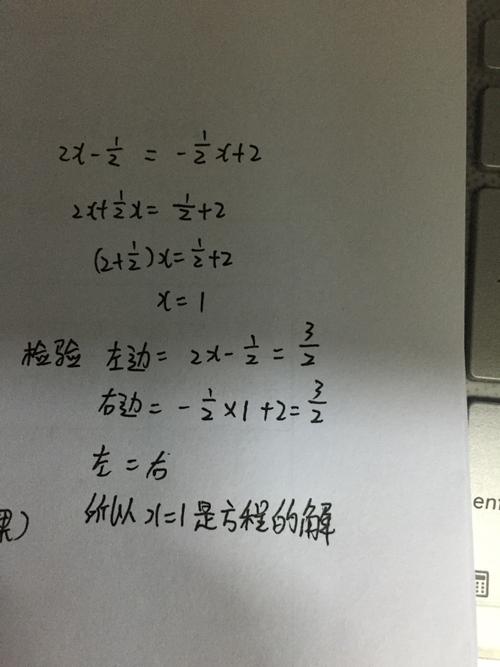 2x-1/2 = -1/2x+2
2x+1/2x=1/2+2
(2+1/2)x=1/2+2
x=1
检验 左边= 2x-1/2=3/2
右边=-1/2×1+2=3/2
左=右
所以x=1是方程的解
果)
ent